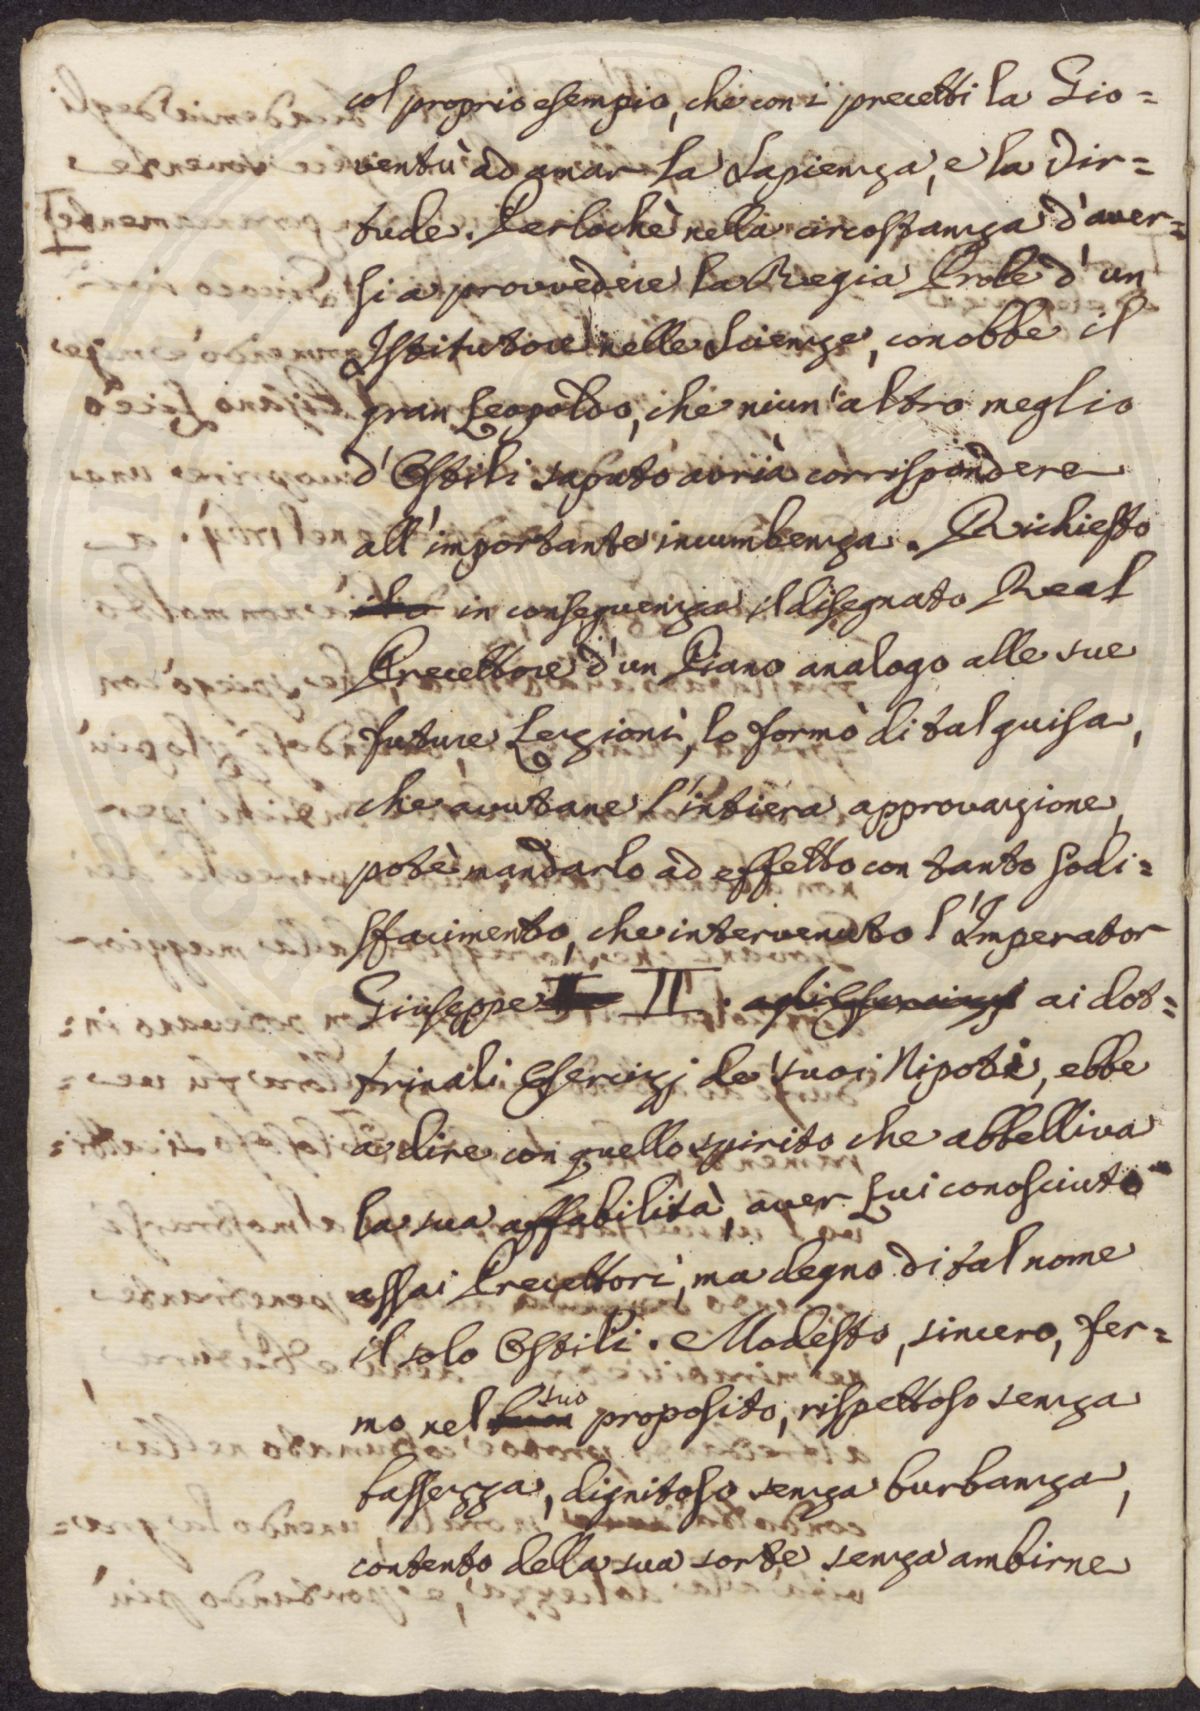 col proprio esempio, che con i precetti la Gio=
ventù ad amar la Sapienza, e la Vir=
tude. Perlochè nella circostanza d'aver=
si a provvedere la Regia Prole d'un
Istitutore nelle Scienze, conobbe il
gran Leopoldo, che niun'altro meglio
d'Ostili saputo avria corrispondere
all'importante incumbenza. Richiesto
in conseguenza il disegnato Real
Precettore d'un Piano analogo alle sue
future Lezioni, lo formò di tal guisa,
che avutane l'intiera approvazione,
potè mandarlo ad effetto con tanto sodi=
sfacimento, che intervenuto l'Imperator
Giuseppe II. ai dot=
trinali Esercizj de' suoi Nipoti, ebbe
a dire con quello spirito che abbelliva
la sua affabilità, aver Lui conosciuto
assai Precettori, ma degno di tal nome
il solo Ostili. Modesto, sincero, fer=
mo nel suo proposito, rispettoso senza
bassezza, dignitoso senza burbanza,
contento della sua sorte senza ambirne